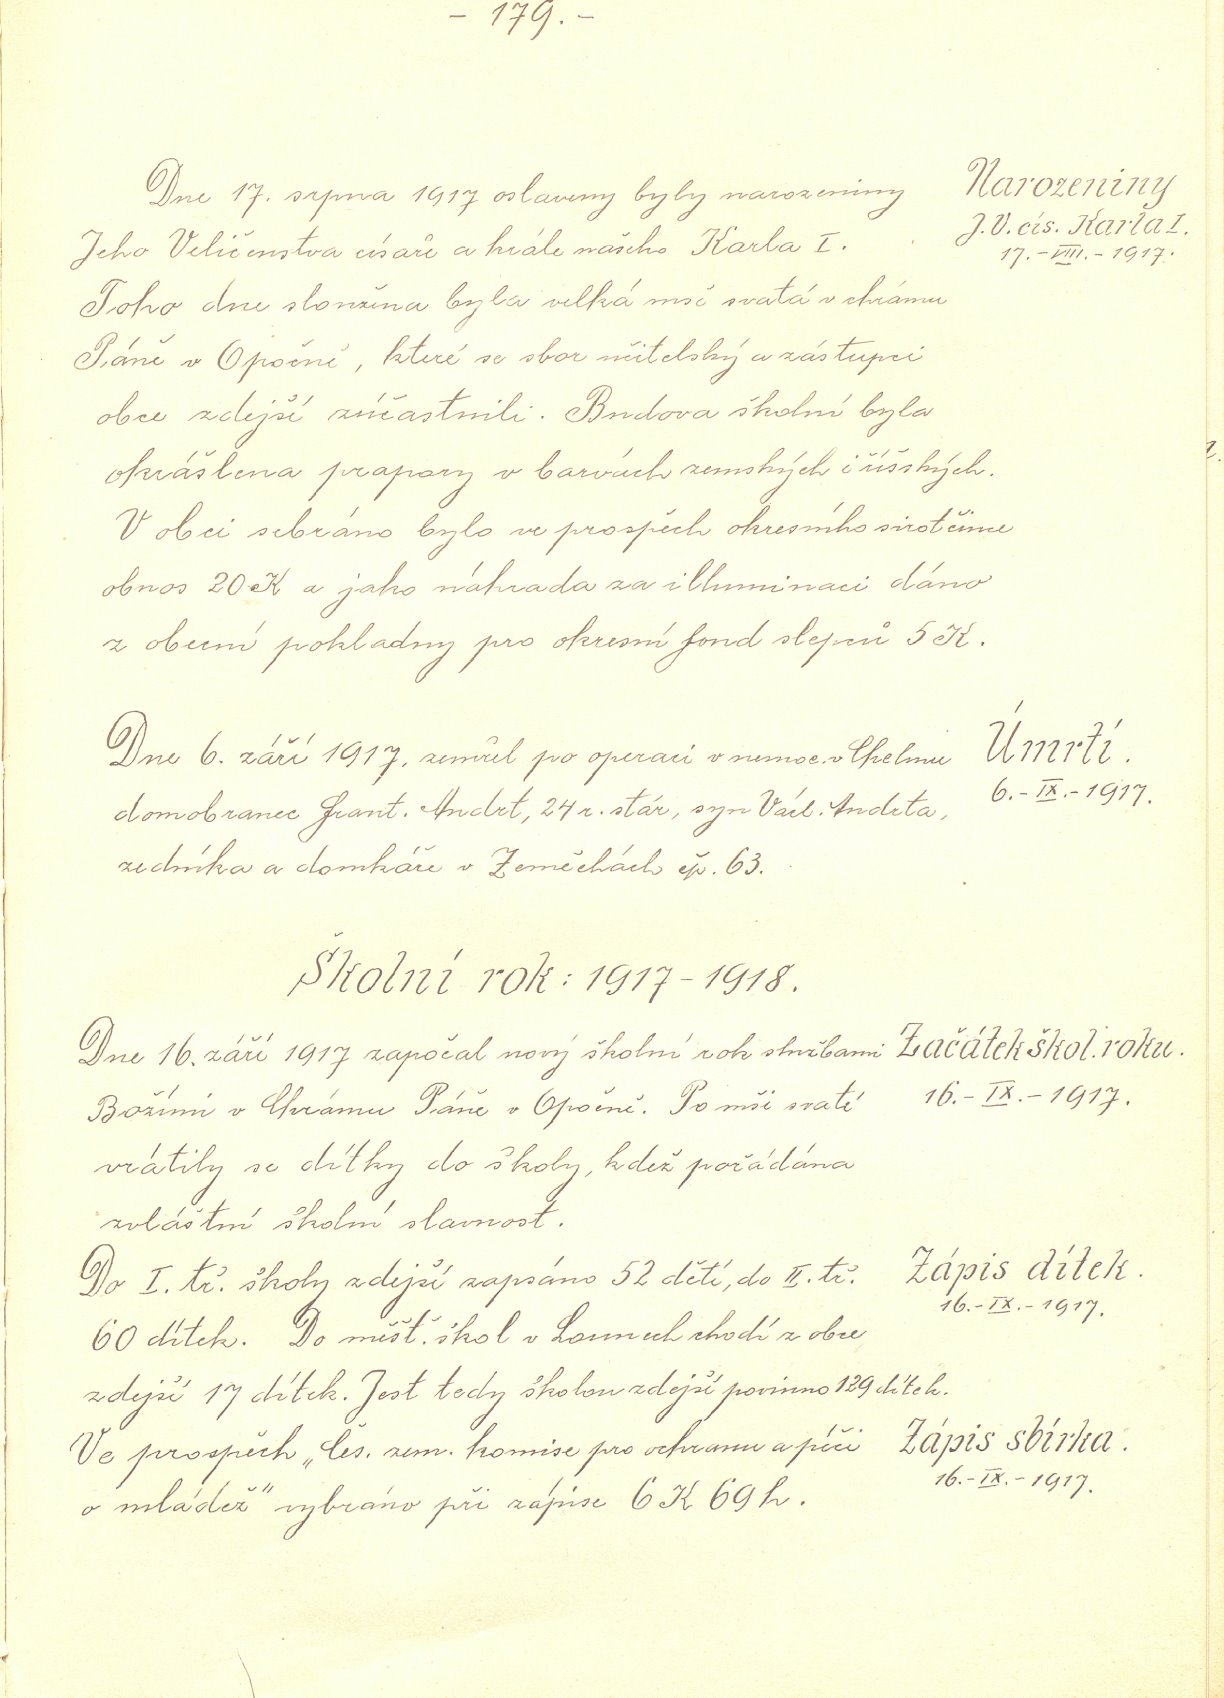 - 179. -
Dne 17. srpna 1917 oslaveny byly narozeniny
Jeho Veličenstva císaře a krále našeho Karla I.
Toho dne sloužena byla velká mše svatá v chrámu
Páně v Opočně, které se sbor učitelský a zástupci
obce zdejší zúčastnili. Budova školní byla
okrášlena prapory v barvách zemských i říšských.
V obci sebráno bylo ve prospěch okresního sirotčince
obnos 20 K a jako náhrada za illuminaci dáno
z obecní pokladny pro okresní fond slepců 5 K.
Narozeniny
J. V. cís. Karla I.
17. - VIII. - 1917.
Dne 6. září 1917, zemřel po operaci v nemoc. v Chelmu
domobranec Frant. Andrt, 24 r. stár, syn Václ. Andrta,
zedníka a domkáře v Zeměchách čp. 63.
Úmrtí.
6. - IX. - 1917.
Školní rok: 1917 - 1918.
Dne 16. září 1917 započal nový školní rok službami
Božími v Chrámu Páně v Opočně. Po mši svaté
vrátily se dítky do školy, kdež pořádána
zvláštní školní slavnost.
Začátek škol. roku.
16. - IX. - 1917.
Do I. tř. školy zdejší zapsáno 52 dětí, do II. tř.
60 dítek. Do měšť. škol v Lounech chodí z obce
zdejší 17 dítek. Jest tedy školou zdejší povinno 129 dítek.
Zápis dítek.
16. - IX. - 1917.
Ve prospěch „Čes. zem. komise pro ochranu a péči
o mládež" vybráno při zápise 6 K 69 h.
Zápis sbírka.
16. - IX. - 1917.